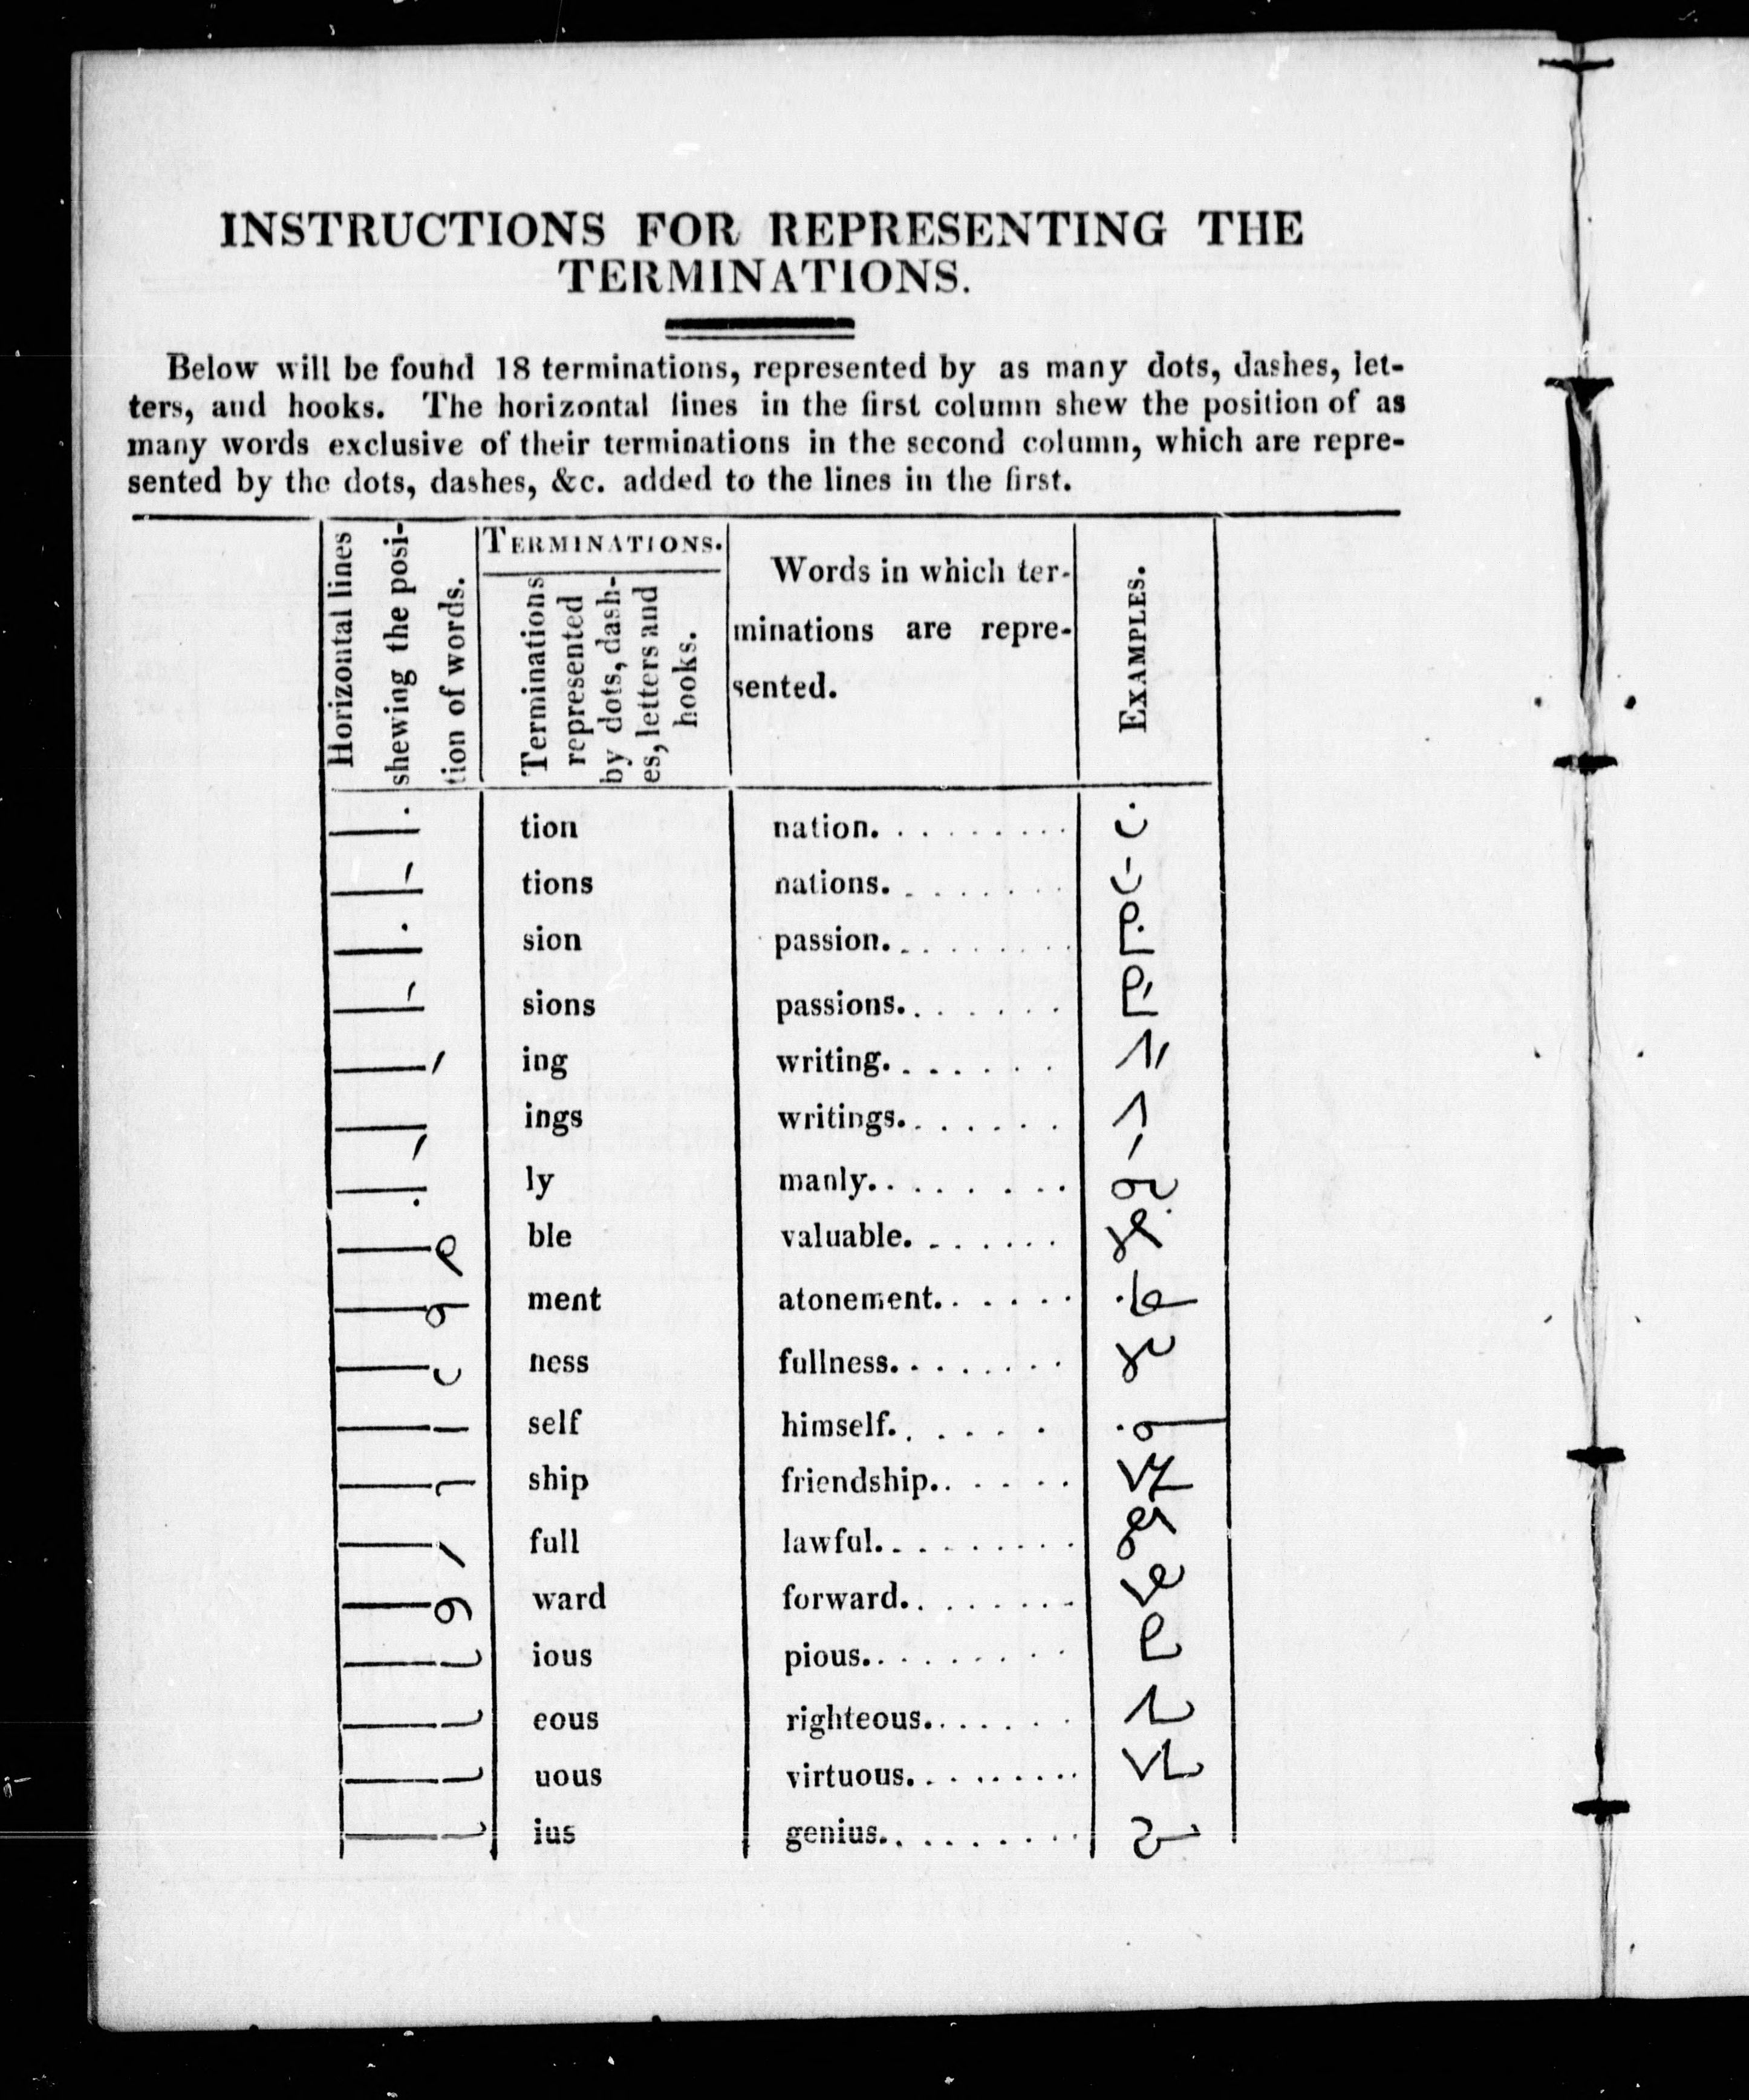 INSTRUCTIONS FOR REPRESENTING THE
TERMINATIONS.
Below will be found 18 terminations, represented by as many dots, dashes, let-
ters, and hooks. The horizontal lines in the first column shew the position of as
many words exclusive of their terminations in the second column, which are repre-
sented by the dots, dashes, &c. added to the lines in the first.
Horizontal lines
shewing the posi-
tion of words.
TERMINATIONS.
Terminations
represented
by dots, dash-
es, letters and
hooks.
Words in which ter-
minations are repre-
sented.
EXAMPLES.
tion nation. . . . . . . . . .
tions nations. . . . . . . .
sion passion. . . . . . . . .
sions passions. . . . . . .
ing writing. . . . . . .
ings writings. . . . . . .
ly manly. . . . . . . . .
ble valuable. . . . . . .
ment atonement. . . . . .
ness fullness. . . . . . . .
self himself. . . . . .
ship friendship. . . . . .
full lawful. . . . . . . . .
ward forward. . . . . . . .
ious pious. . . . . . . . .
eous righteous. . . . . . .
uous virtuous. . . . . . . . .
ius genius. . . . . . . . .